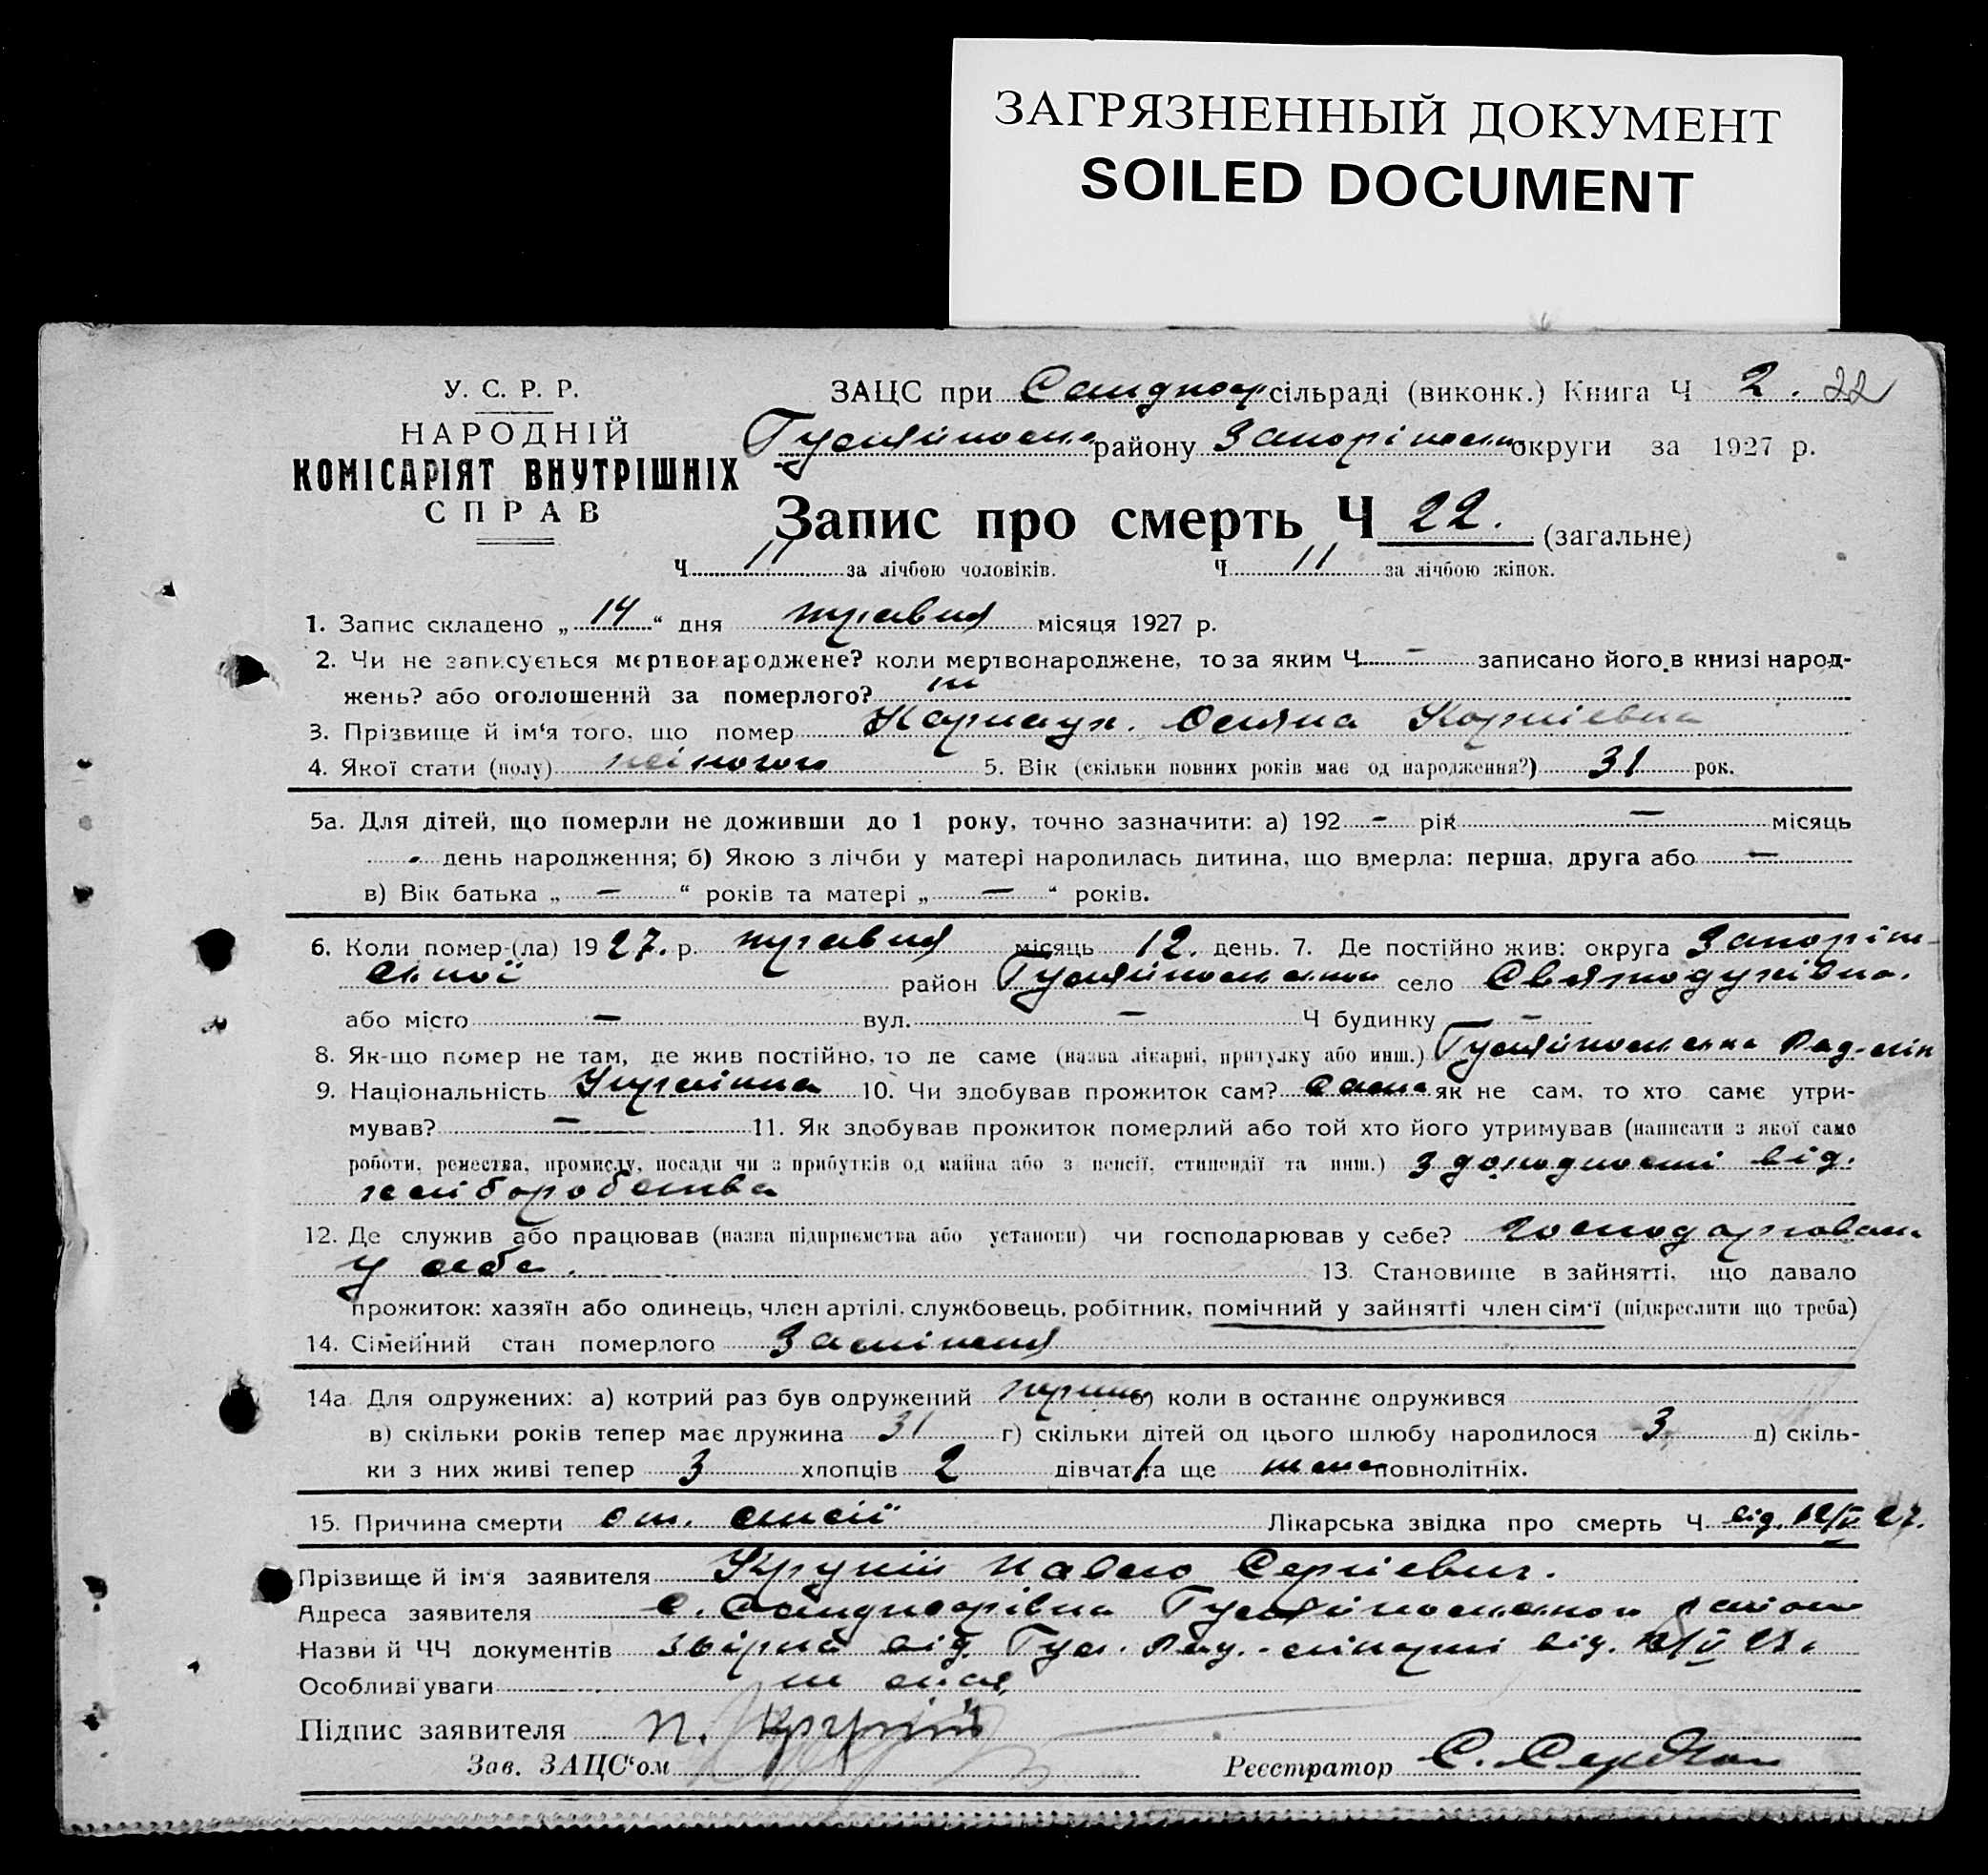 ЗАГРЯЗНЕННЫЙ ДОКУМЕНТ
SOILED DOCUMENT
У. С. Р. Р.
НАРОДНІЙ
КОМІСАРІЯТ ВНУТРІШНІХ
СПРАВ
ЗАЦС при сільраді (виконк.) Книга Ч 2. 22
району округи за 1927 р.
Запис про смерть Ч 22. (загальне)
Ч 11 за лічбою чоловіків. Ч 11 за лічбою жінок.
1. Запис складено „ 14 “ дня травня місяця 1927 р.
2. Чи не записується мертвонароджене? коли мертвонароджене, то за яким Ч – записано його в книзі народ-
жень? або оголошений за померлого? ні
3. Прізвище й ім‘я того, що помер Карнаух. Корніевна
4. Якої стати (полу) жіночої 5. Вік (скільки повних років має од народження?) 31 рок.
5а. Для дітей, що померли не доживши до 1 року, точно зазначити: а) 192 – рік – місяць
– день народження; б) Якою з лічби у матері народилась дитина, що вмерла: перша, друга або –
в) Вік батька „ – “ років та матері „ – “ років.
6. Коли помер-(ла) 19 27. р. травня місяць 12. день. 7. Де постійно жив: округа Запоріж-
ської район село Святодухівка.
або місто – вул. – Ч будинку –
8. Як-що помер не там, де жив постійно, то де саме (назва лікарні, притулку або инш.) Рад-лік
9. Національність Українка 10. Чи здобував прожиток сам? сама як не сам, то хто саме утри-
мував? – 11. Як здобував прожиток померлий або той хто його утримував (написати з якої само
роботи, ремества, промислу, посади чи з прибутків од майна або з пенсії, стипендії та инш.) від.
хліборобства
12. Де служив або працював (назва підприємства або установи) чи господарював у себе?
у себе. 13. Становище в зайнятті, що давало
прожиток: хазяїн або одинець, член артілі, службовець, робітник, помічний у зайнятті член сім‘ї (підкреслити що треба)
14. Сімейний стан померлого Заміжня
14а. Для одружених: а) котрий раз був одружений перший б) коли в останнє одружився
в) скільки років тепер має дружина 31 г) скільки дітей од цього шлюбу народилося 3 д) скіль-
ки з них живі тепер 3 хлопців 2 дівчат 1 та ще повнолітніх.
15. Причина смерти Лікарська звідка про смерть Ч від. 12/V 27.
Прізвище й ім‘я заявителя Павло Сергіевич.
Адреса заявителя с.
Назви й ЧЧ документів від Гул. Рад. - лікарні від. 12/V
Особливі уваги
Підпис заявителя П.
Зав. ЗАЦС‘ом Реєстратор С.